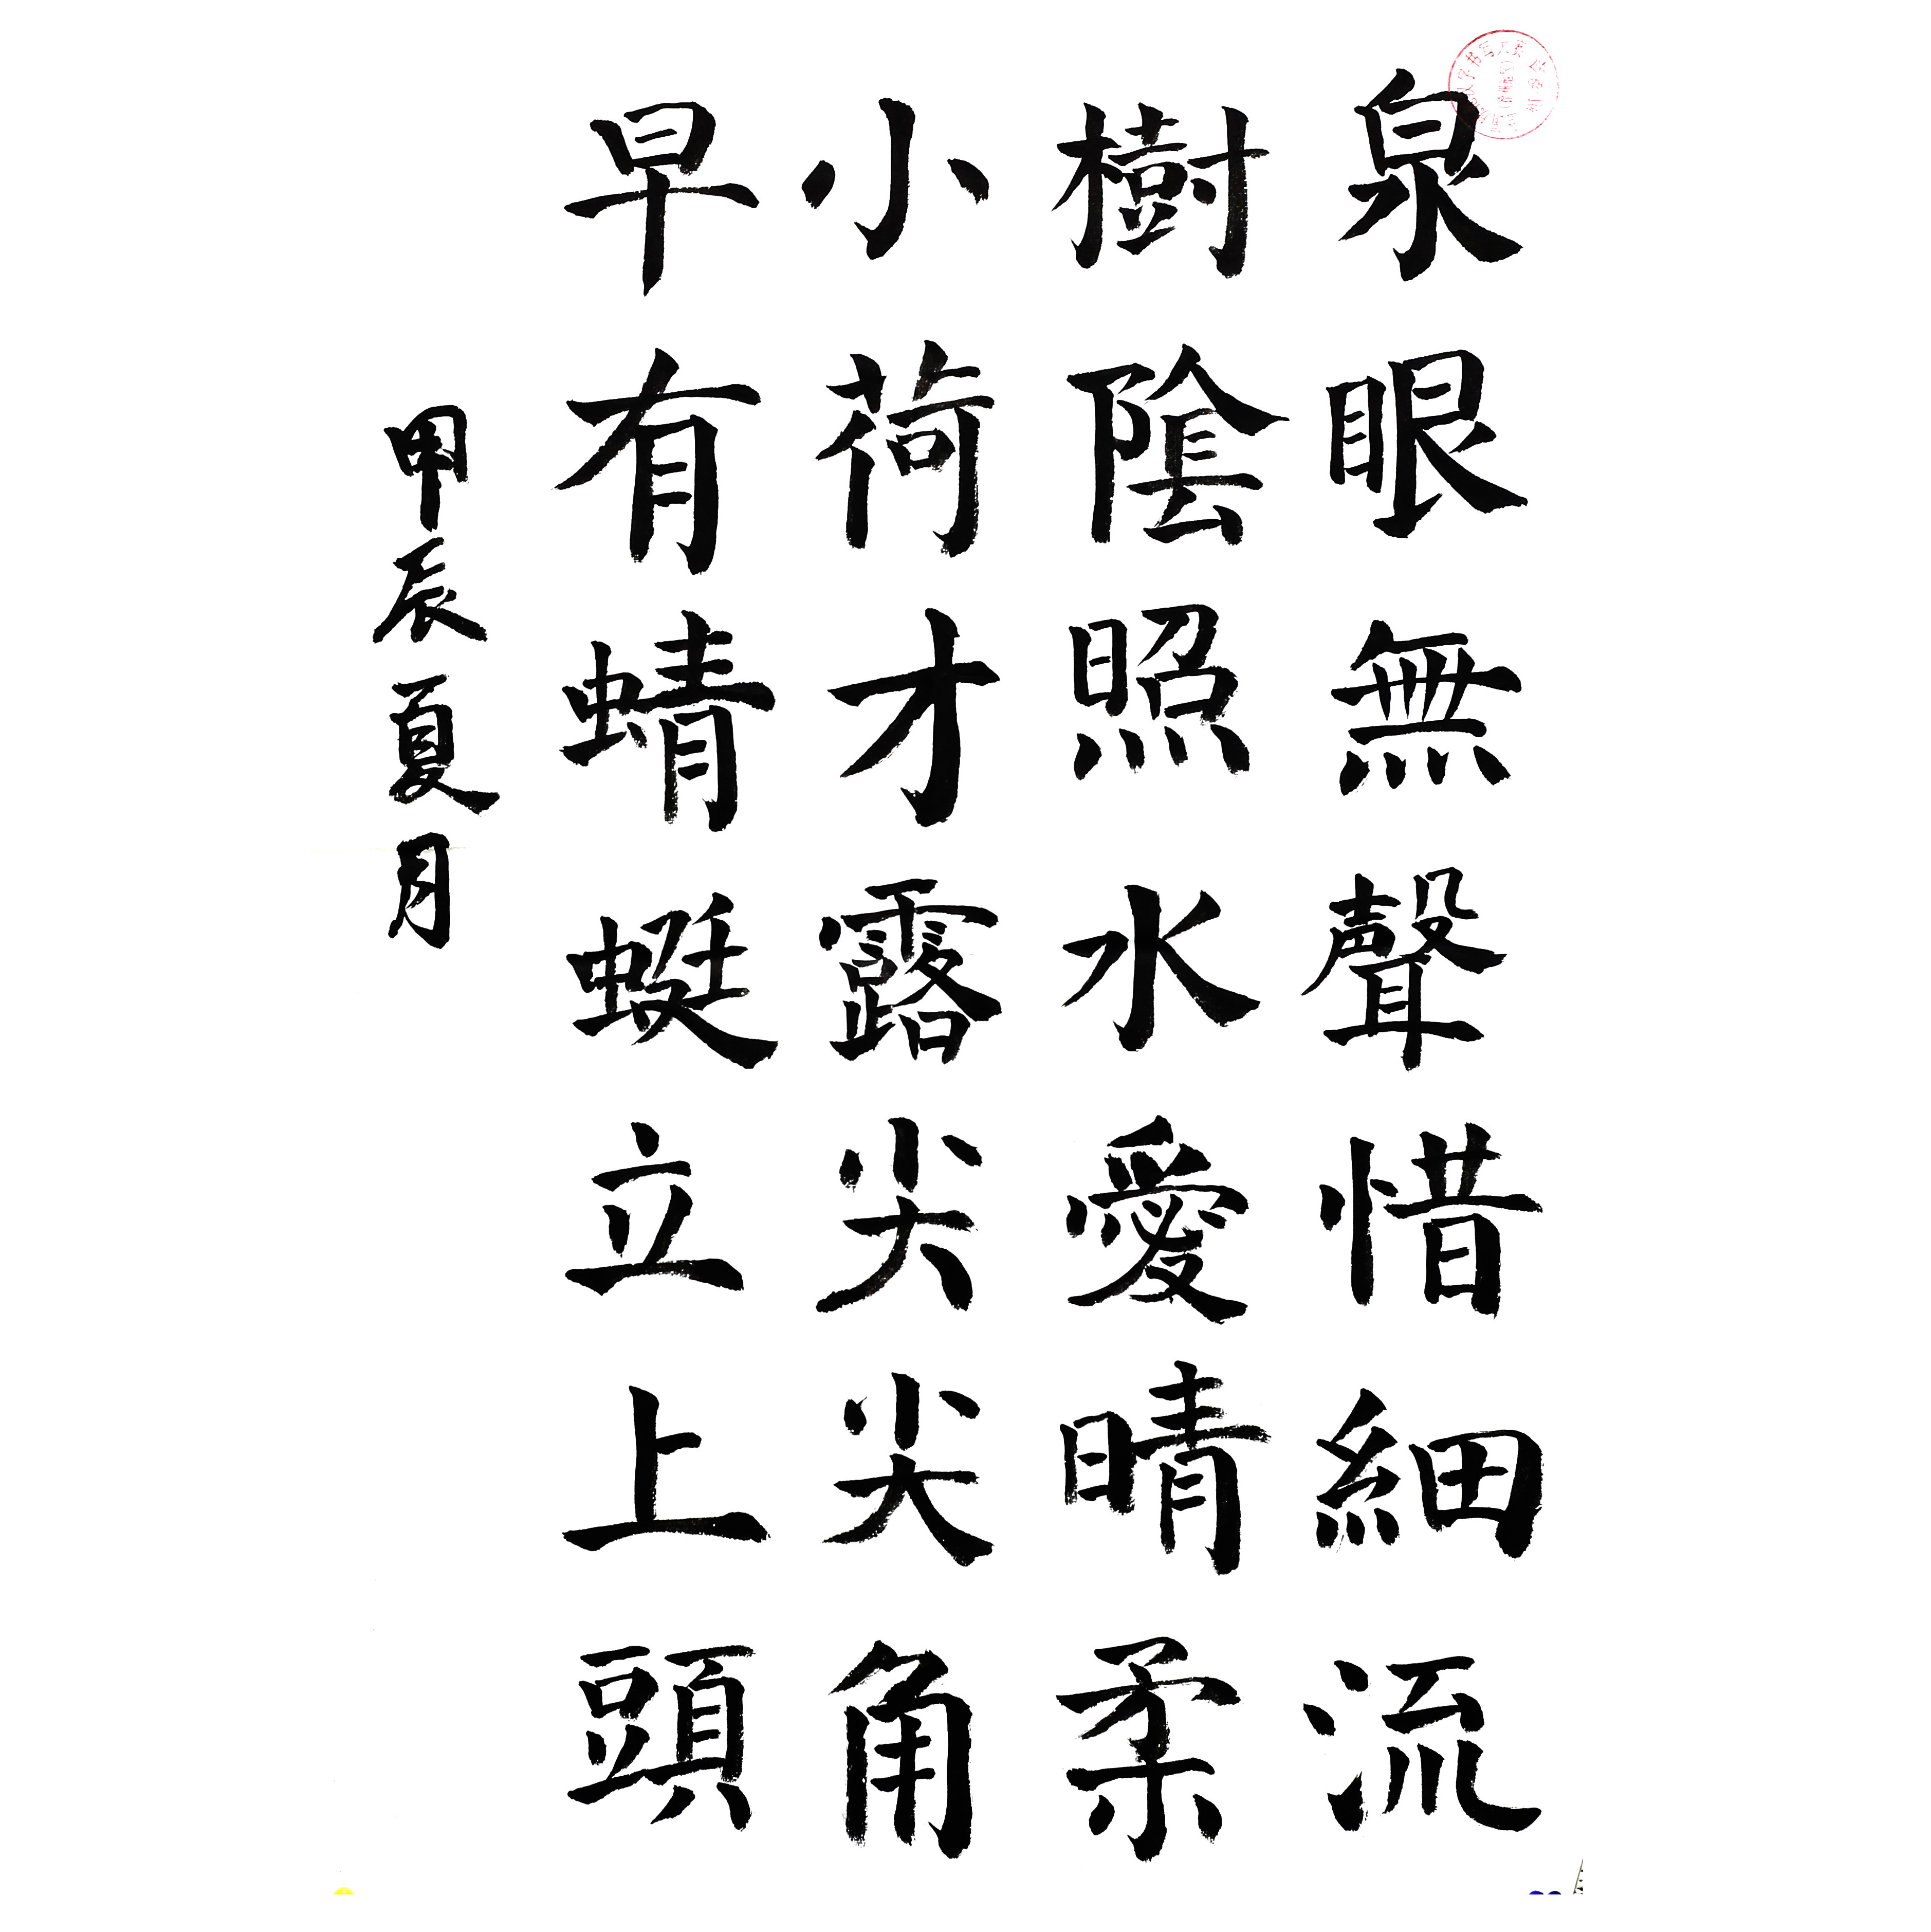 泉眼無聲惜細流
樹陰照水愛晴柔
小荷才露尖尖角
早有蜻蜓立上頭
甲辰夏月